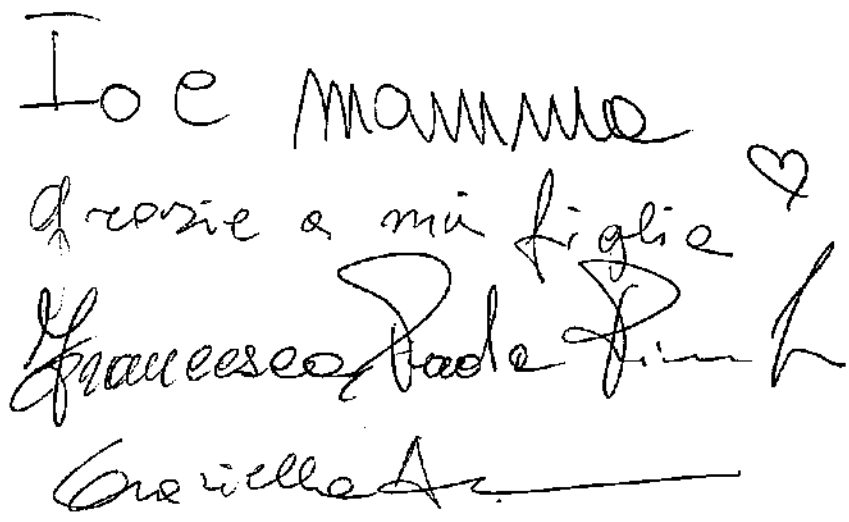 Io e mamma
grazie a mia figlia
Francesca Paola
Graziella